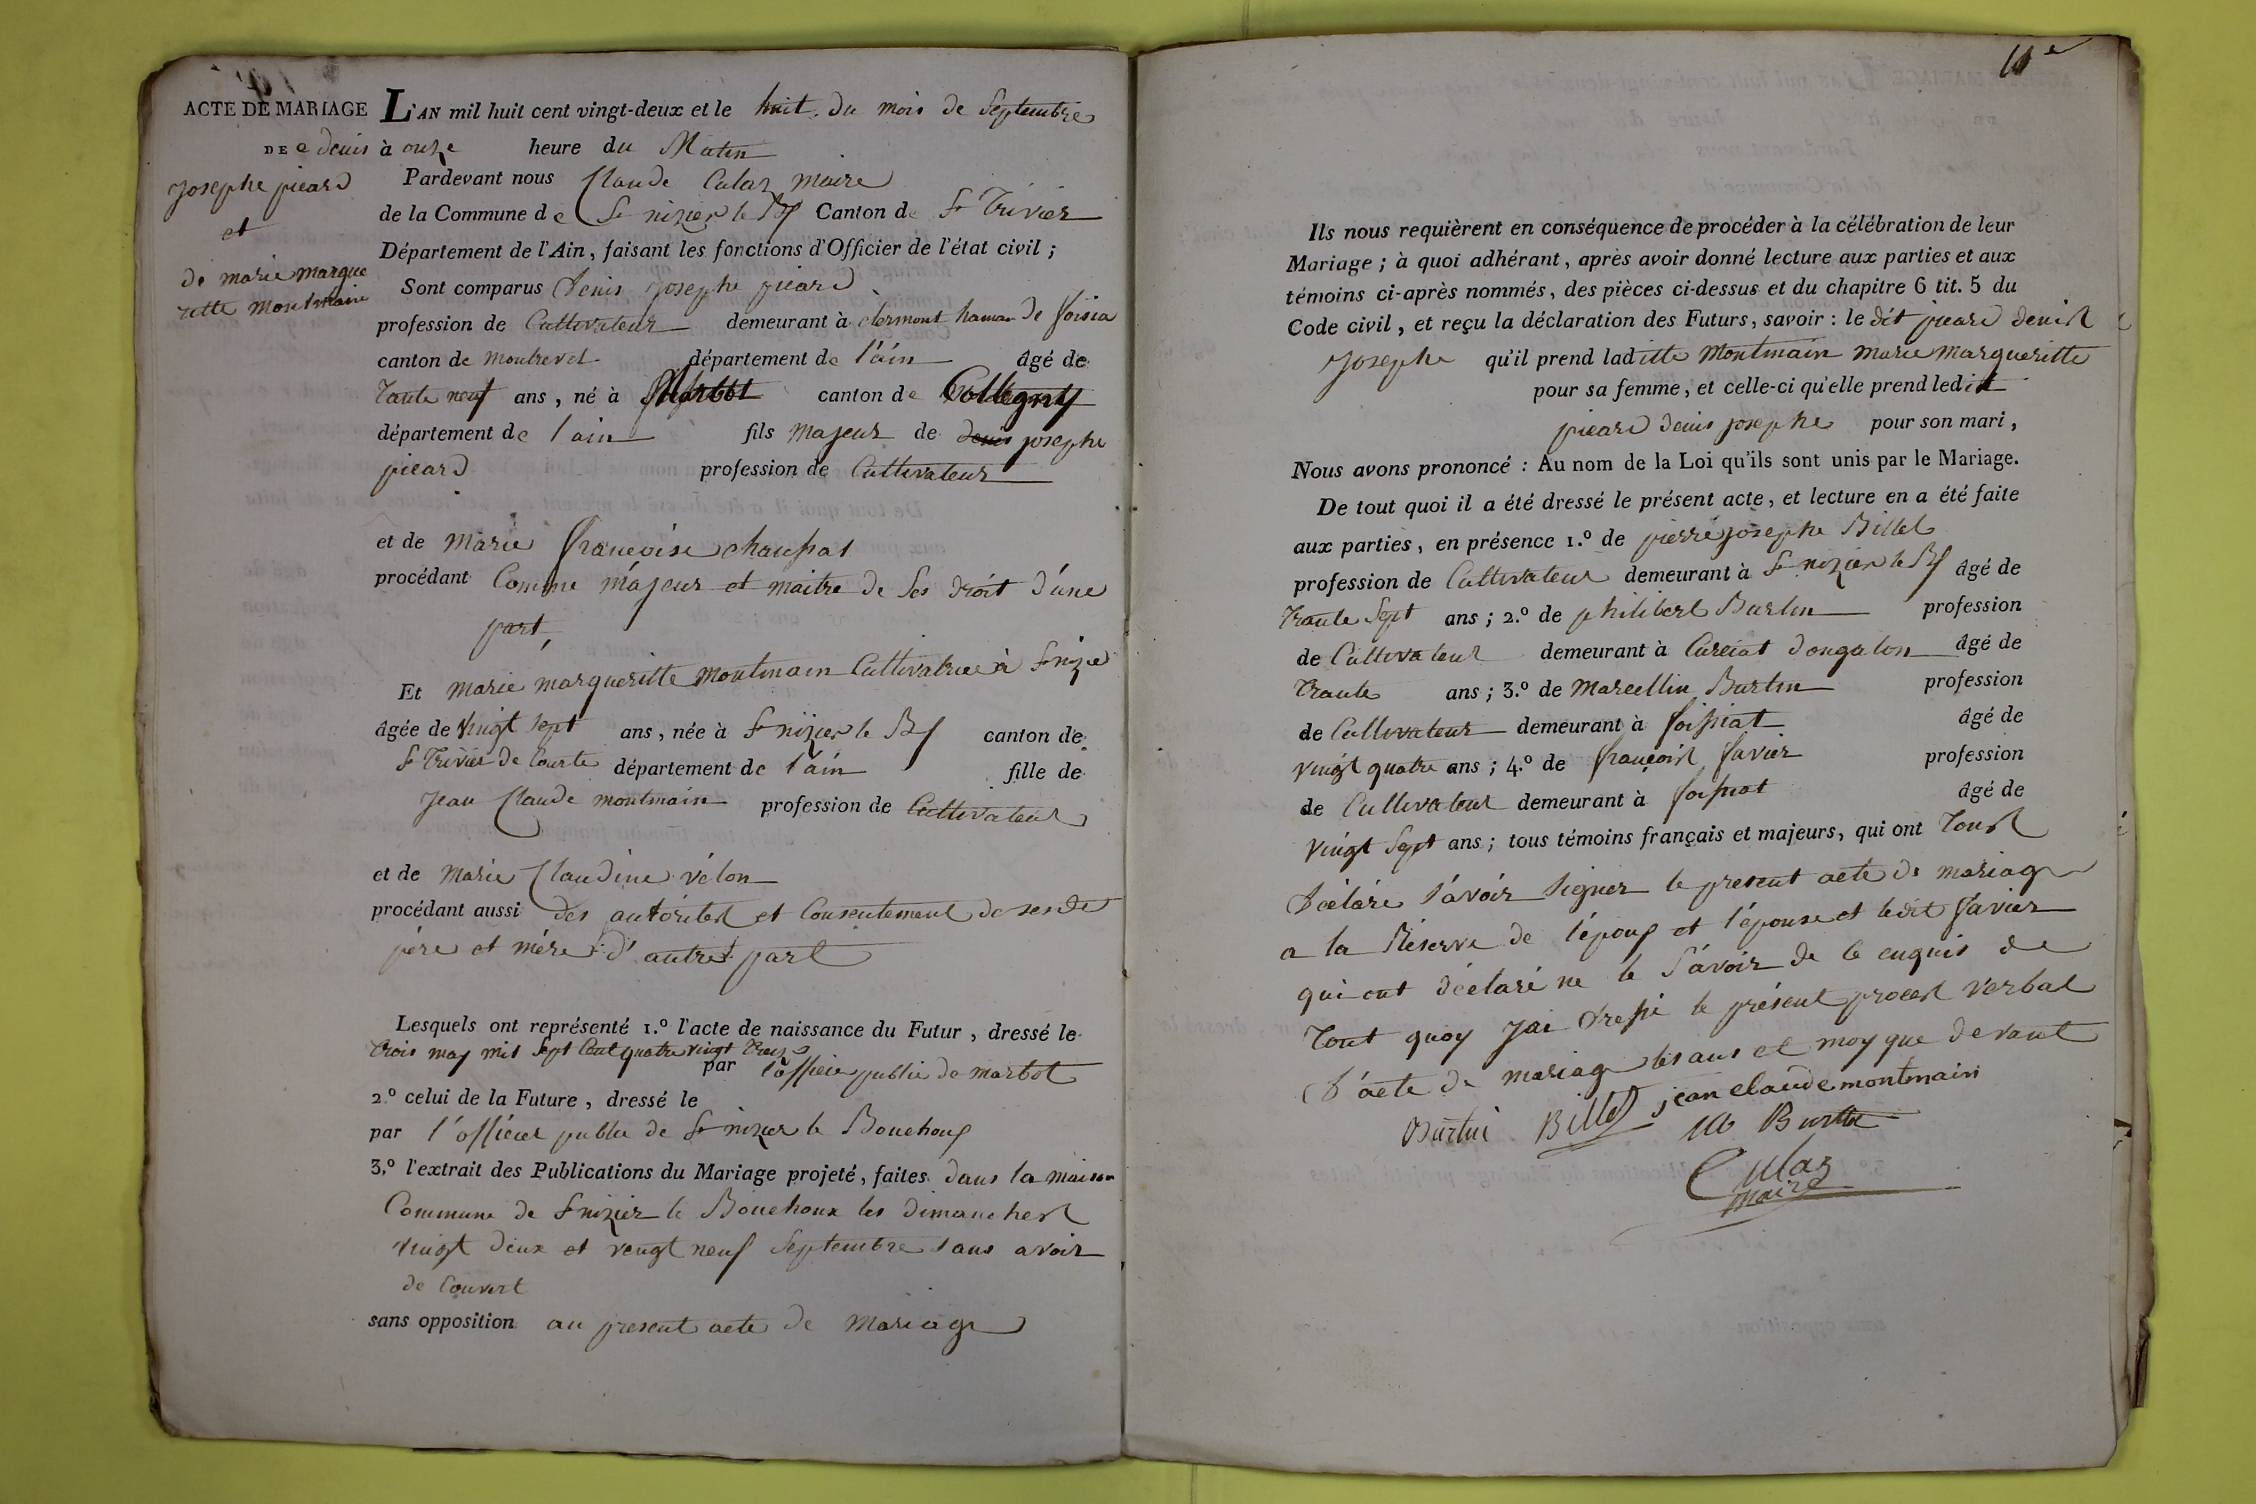 ACTE DE MARIAGE
DE e denis
josephe picard
et
de marie margue
ritte montmain
L'AN mil huit cent vingt-deux et le huit du mois de Septembre
à onze heure du Matin
Pardevant nous Claude Culaz maire
de la Commune de St nizier le Bx Canton de St Trivier
Département de l'Ain, faisant les fonctions d'Officier de l'état civil ;
Sont comparus denis josephe picard
profession de Cultivateur demeurant à clermont hamau de foisia
canton de montrevel département de l'ain âgé de
Trante neuf ans, né à Marbot canton de Collegny
département de l'ain fils majeur de denis josephe
picard profession de Cultivateur
et de Marie françoise chaussat
procédant Comme majeur et maitre de ses droit d'une
part,
Et marie margueritte montmain Cultivatrice à St nizie
âgée de vingt sept ans, née à St nizier le Bx canton de
St Trivier de Courte département de l'ain fille de
jean Claude montmain profession de Cultivateur
et de Marie Claudine vélon
procédant aussi des autorités et Consentement de ses de
père et mère d'autre part
Lesquels ont représenté 1.º l'acte de naissance du Futur, dressé le
trois may mil sept Cent quatre vingt trois
par l'officie public de marbot
2.º celui de la Future, dressé le
par l'officier public de St nizier le Bouchoux
3.º l'extrait des Publications du Mariage projeté, faites dans la maison
Commune de St nizier le Bouchoux les dimanches
vingt deux et vengt neuf Septembre sans avoir
de Couvert
sans opposition au present acte de mariage
Ils nous requièrent en conséquence de procéder à la célébration de leur
Mariage ; à quoi adhérant, après avoir donné lecture aux parties et aux
témoins ci-après nommés, des pièces ci-dessus et du chapitre 6 tit. 5 du
Code civil, et reçu la déclaration des Futurs, savoir : le dit picard denis
josephe qu'il prend laditte Montmain marie margueritte
pour sa femme, et celle-ci qu'elle prend ledit
picard denis josephe pour son mari,
Nous avons prononcé : Au nom de la Loi qu'ils sont unis par le Mariage.
De tout quoi il a été dressé le présent acte, et lecture en a été faite
aux parties, en présence 1.º de pierre josephe Billet
profession de Cultivateur demeurant à St nizier le Bx âgé de
trante sept ans ; 2.º de philibert Burtin profession
de Cultivateur demeurant à Curciat dongalon âgé de
trante ans ; 3.º de Marcellin Burtin profession
de Cultivateur demeurant à foissiat âgé de
vingt quatre ans ; 4.º de françois favier profession
de Cultivateur demeurant à foissiat âgé de
vingt sept ans ; tous témoins français et majeurs, qui ont tous
déclaré savoir signer le present acte de mariage
a la Réserve de l'époux et l'épouse et ledit favier
qui ont déclaré ne le Savoir de ce enquis de
tout quoy jai dressé le présent procest verbal
d'acte de mariage les ans et moy que devant
jean claude montmain
Burtin Billet Burtin
Culaz
maire